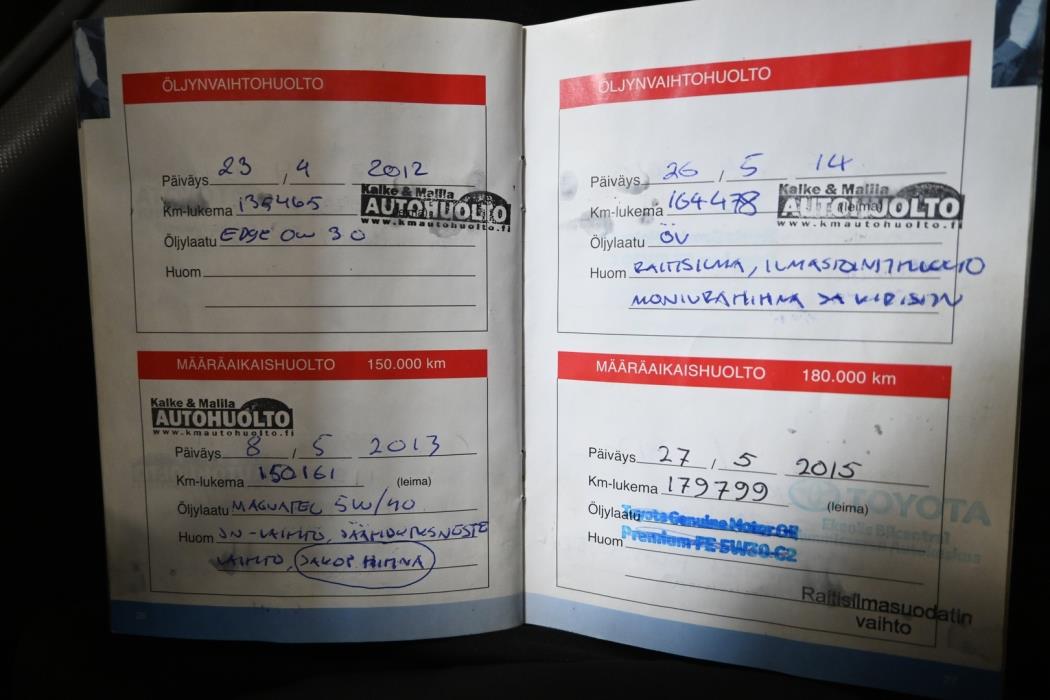 ÖLJYNVAIHTOHUOLTO
Päiväys 23 / 4 2012
Kalke & Malila
AUTOHUOLTO
www.kmautohuolto.fi
Km-lukema 139465
Öljylaatu EDGE OW 30
Huom
MÄÄRÄAIKAISHUOLTO 150.000 km
Kalke & Malila
AUTOHUOLTO
www.kmautohuolto.fi
Päiväys 8 / 5 2013
Km-lukema 150161 (leima)
Öljylaatu MAGNATEC 5W/40
Huom JN-VAIHTO, JÄÄHDYTYSNESTE
VAIHTO, JAKOP.HIHNA
26
ÖLJYNVAIHTOHUOLTO
Päiväys 26 / 5 14
Kalke & Malila
AUTOHUOLTO
www.kmautohuolto.fi
Km-lukema 164478 (leima)
Öljylaatu ÖV
Huom RAITISILMA, ILMASTOINTIHUOLTO
MONIURAHIHNA JA KIRISTIN
MÄÄRÄAIKAISHUOLTO 180.000 km
Päiväys 27 / 5 2015
Km-lukema 179799 (leima)
TOYOTA
Öljylaatu Toyota Genuine Motor Oil
Huom Premium FE 5W30 C2
Raitisilmasuodatin
vaihto
27